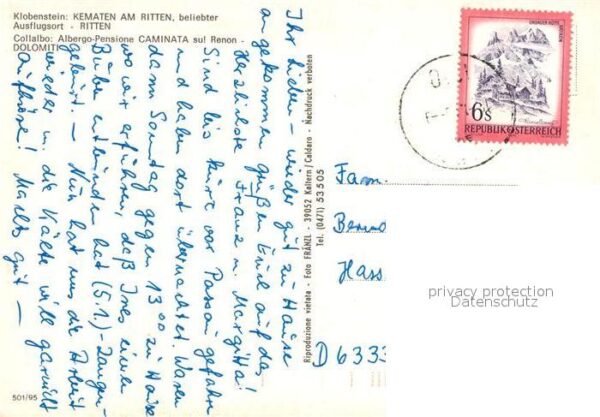 Klobenstein: KEMATEN AM RITTEN, beliebter
Ausflugsort - RITTEN
Collalbo: Albergo-Pensione CAMINATA sul Renon -
DOLOMITI
Ihr Lieben - wieder gut zu Hause
angekommen grüßen Euch auf das
Herzlichste Franz u. Margitta!
Sind bis kurz vor Passau gefahren
und haben dort übernachtet. Waren
dann Sonntag gegen 13 00 zu Hause
wo wir erfuhren, daß Ines einen
Buben entbunden hat (5.1.) - Zangen-
geburt. - Nun hat uns die Arbeit
wieder u. die Kälte will garnicht
aufhören! Machts
gut -
501/95
Riproduzione vietata - Foto FRÄNZL - 39052 Kaltern/Caldaro - Nachdruck verboten
Tel. (0471) 53505
6s
REPUBLIK ÖSTERREICH
Fam.
Hass
D 6333
privacy protection
Datenschutz